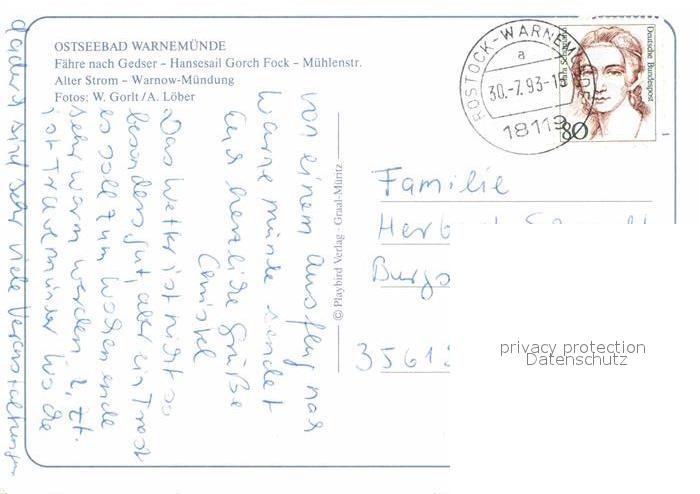 OSTSEEBAD WARNEMÜNDE
Fähre nach Gedser – Hansesail Gorch Fock – Mühlenstr.
Alter Strom – Warnow-Mündung
Fotos: W. Gorlt / A. Löber
von einem Ausflug nach
Warnemünde sendet
Euch herzliche Grüße
Christel
Das Wetter ist nicht so
besonders gut, aber ein Trost
es soll zum Wochenende
sehr warm werden. Z. Zt.
ist Travemünder Woche
dadurch sind sehr viele Veranstaltungen
© Playbird Verlag · Graal-Müritz
ROSTOCK-WARNEMÜNDE
a
30.-7.93-15
18119
Deutsche Bundespost
80
Familie
Herb
Burgs
3561
privacy protection
Datenschutz